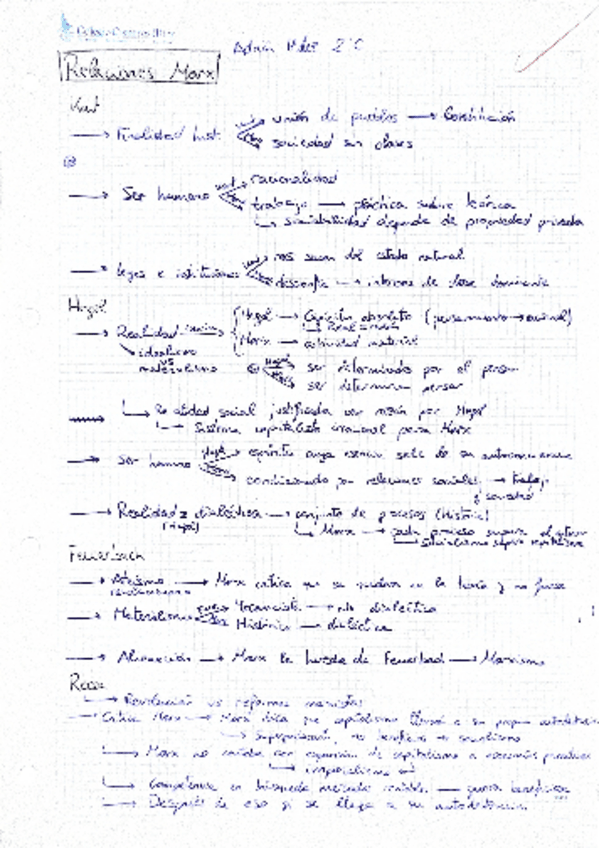 Adrián 2ºC
Relaciones Marx
Kant
→ Finalidad hist. unión de pueblos → Constitución
sociedad sin clases
→ Ser humano racionalidad
trabajo → práctica sobre teórica
↳ sociabilidad depende de propiedad privada
→ leyes e instituciones nos sacan del estado natural
desconfía → intereses de clase dominante
Hegel
→ Realidad Hegel → Espíritu absoluto (pensamiento →
idealismo vs materialismo Marx → actividad material
Hegel ser determinado por el pensar
Marx ser determina pensar
↳ Realidad social justificada con razón por Hegel
↳ Sistema capitalista irracional para Marx
→ Ser humano Hegel espíritu cuya esencia sale de su autoconciencia
condicionado por relaciones sociales → trabajo
y sociedad
→ Realidad dialéctica → conjunto de procesos (Historia)
(Hegel) ↳ Marx → cada proceso supera al
↳ socialismo supera capitalismo
Feuerbach
→ Ateísmo → Marx critica que se quedara en la teoría y no fuese
→ Materialismo → no dialéctico
Histórico → dialéctica
→ Alienación → Marx la hereda de Feuerbach → Marxismo
↳ Revolución vs reformas
→ Crítica Marx → Marx dice que capitalismo llevará a su propia autodestrucción
→ no beneficios → socialismo
↳ Marx no contaba con expansión de capitalismo a
↳ imperialismo
↳ Competencia en búsqueda mercado → guerra
↳ Después de eso sí se llega a su autodestrucción